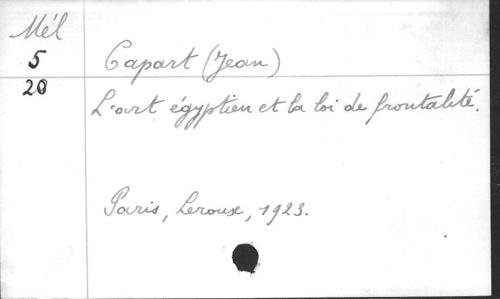 Mél
5
20
Capart (Jean)
L'art égyptien et la loi de frontalité.
Paris, Leroux, 1923.